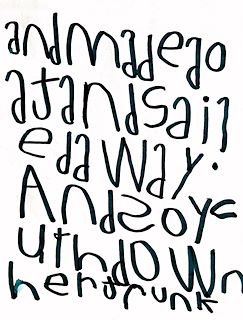 andmadeao
atandSail
edaWay.
AndSoyc
uthdOWn
hertrunk